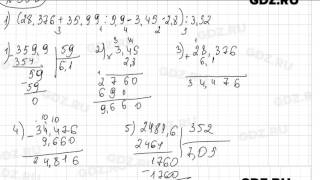 GDZ.RU
1) (28,376 + 35,99 : 5,9 - 3,45 · 2,8) : 3,52
3 1 4 2 5
1) 359,9 | 59
354 | 6,1
59
59
0
2) 3,45
2760
690
9,660
3) + 28,376
6,1
34,476
4) - 34,476
9,660
24,816
5) 2481,6 | 352
2464 | 7,05
1760
1760
GDZ.RU